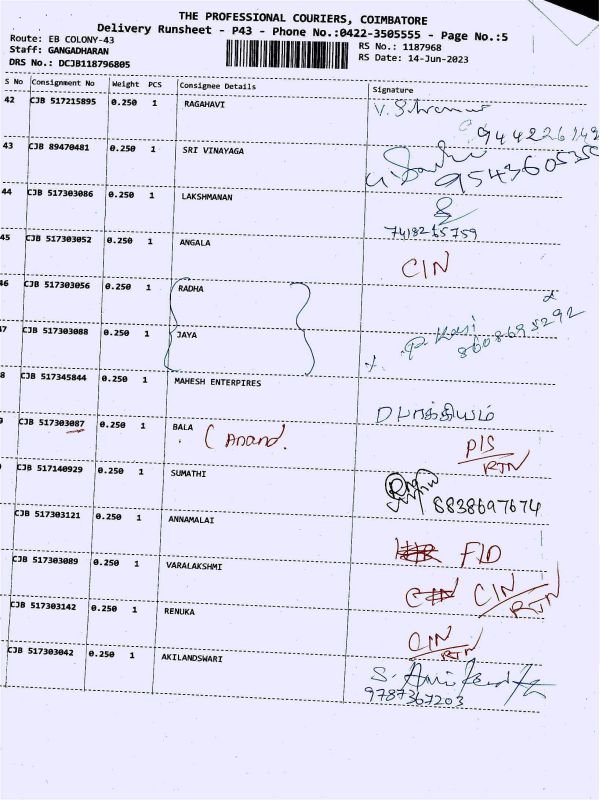 THE PROFESSIONAL COURIERS, COIMBATORE
Delivery Runsheet - P43 - Phone No.:0422-3505555 - Page No.:5
Route: EB COLONY-43
RS No.: 1187968
Staff: GANGADHARAN
RS Date: 14-Jun-2023
DRS No.: DCJB118796805
S No Consignment No Weight PCS Consignee Details Signature
42 CJB 517215895 0.250 1 RAGAHAVI
43 CJB 89470481 0.250 1 SRI VINAYAGA 9543605355
44 CJB 517303086 0.250 1 LAKSHMANAN
7418265759
45 CJB 517303052 0.250 1 ANGALA
CIN
46 CJB 517303056 0.250 1 RADHA
47 CJB 517303088 0.250 1 JAYA P. Kasi
8608695292
8 CJB 517345844 0.250 1 MAHESH ENTERPIRES
D பாக்கியம்
9 CJB 517303087 0.250 1 BALA
(Anand. PIS
RTN
CJB 517140929 0.250 1 SUMATHI
8838697674
CJB 517303121 0.250 1 ANNAMALAI
FID
CJB 517303089 0.250 1 VARALAKSHMI
CIN CIN
RTN
CJB 517303142 0.250 1 RENUKA
CIN
RTN
CJB 517303042 0.250 1 AKILANDSWARI
9787367203